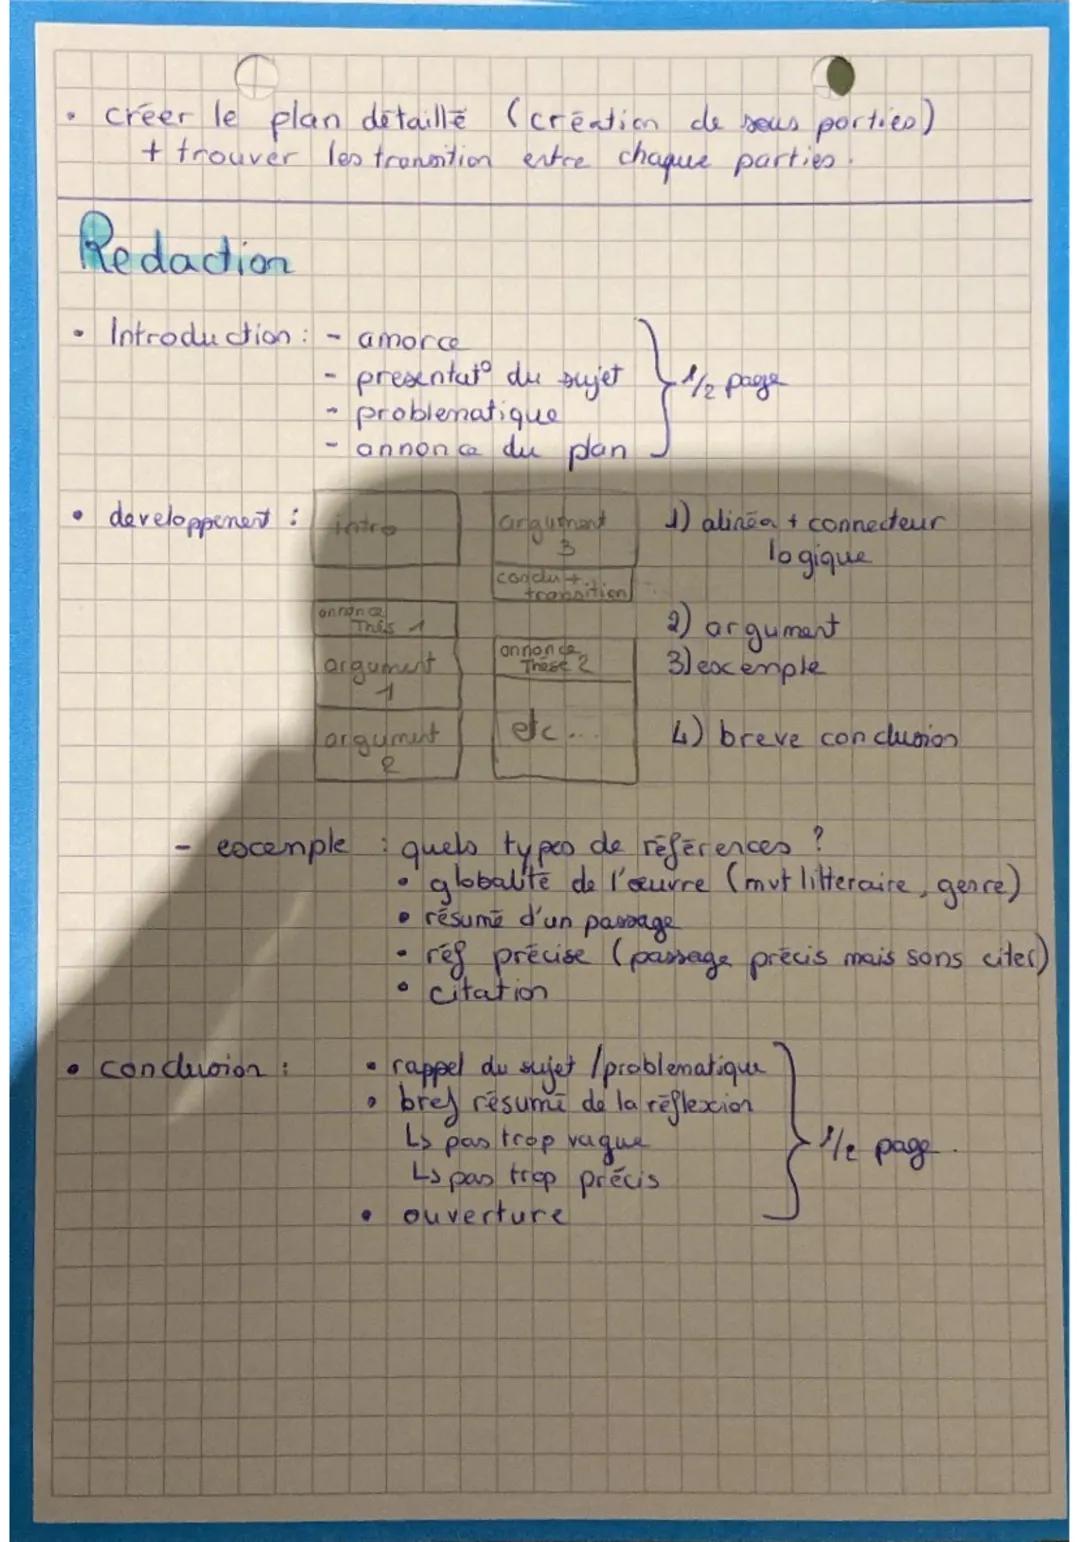 • créer le plan détaillé (création de sous parties)
+ trouver les transition entre chaque parties.
Redaction
• Introduction : - amorce
- presentat° du sujet
- problematique
- annonce du plan
1/2 page
• developpement :
intro
annonce
Thès 1
argument
1
argument
2
argument
3
conclu +
transition
annonce
Thèse 2
etc...
1) alinéa + connecteur
logique
2) argument
3) excemple
4) breve conclusion
- excemple : quels types de références ?
• globalité de l'œuvre (mvt litteraire, genre)
• résumé d'un passage
• réf précise (passage précis mais sans citer)
• citation
• conclusion :
• rappel du sujet / problematique
• bref résumé de la réflexion
↳ pas trop vague
↳ pas trop précis
• ouverture
1/2 page.